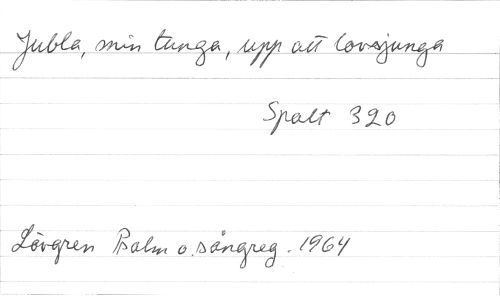 Jubla, min tunga, upp att lovsjunga
Spalt 320
Lövgren Psalm o. sångreg. 1964